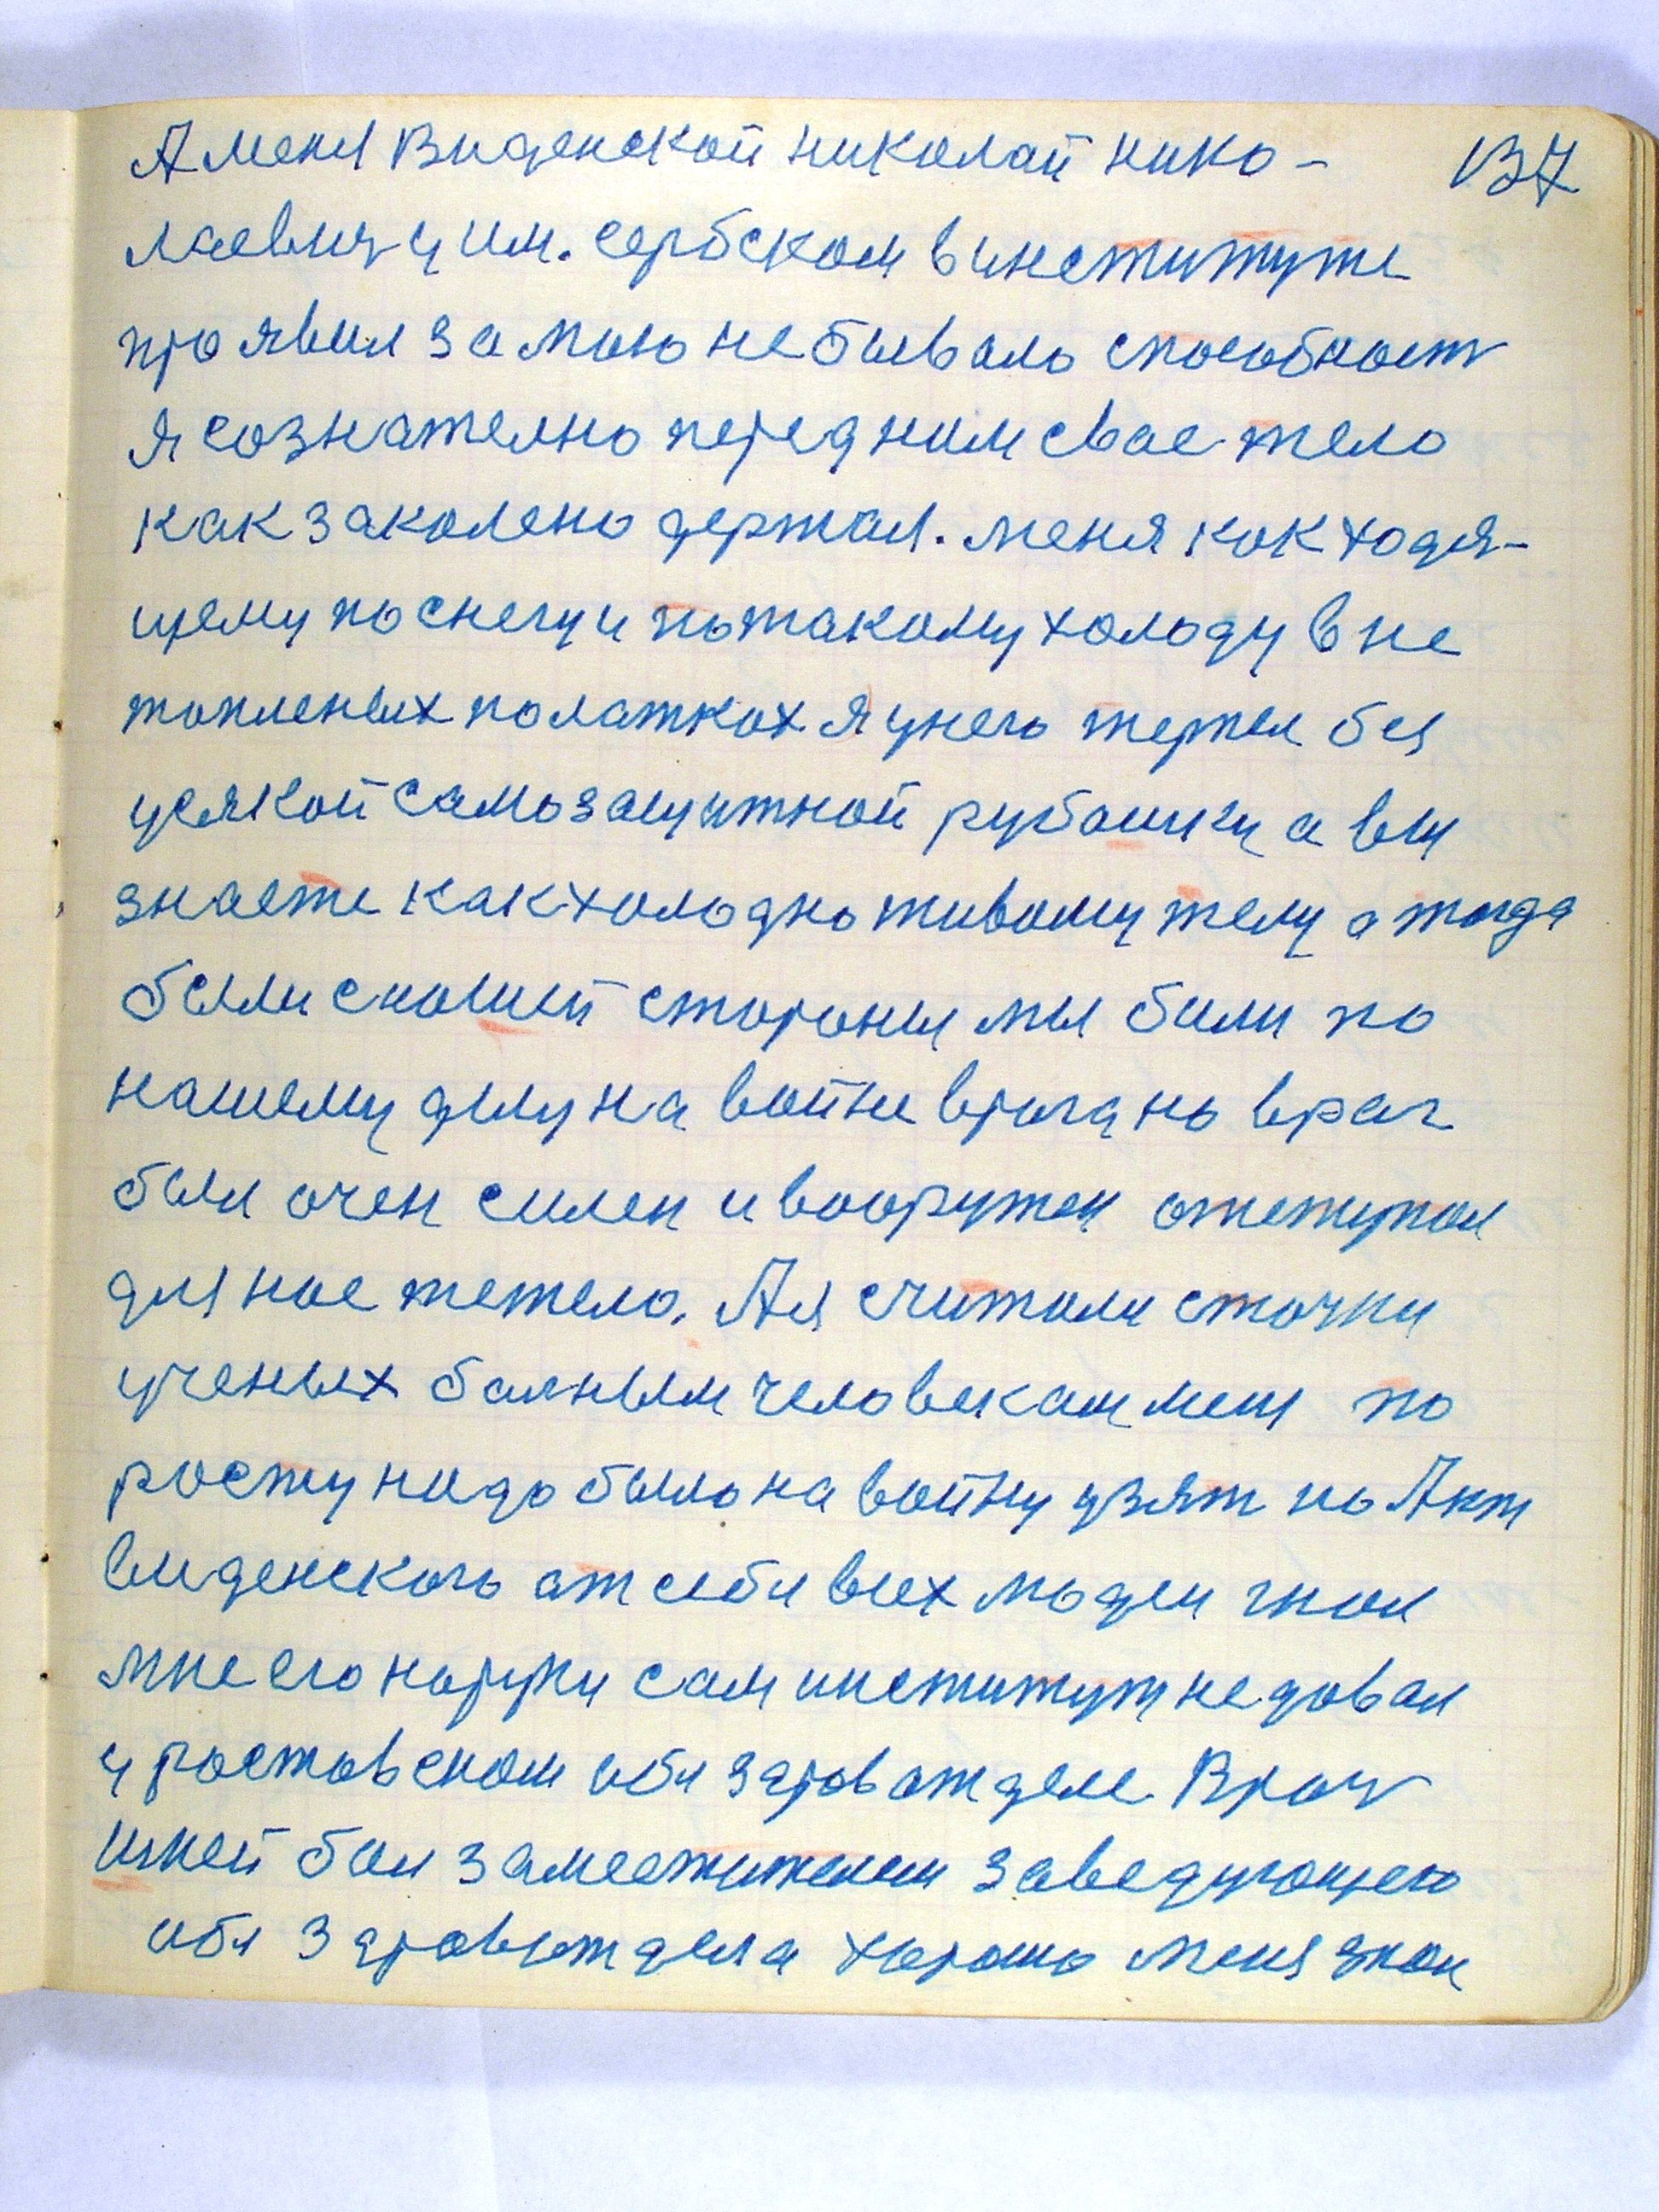 А меня Виденской николай нико-
лаевич у им. сербском в институте
проявил за мою небывало способност
я сознателно перед ним свае тело
как заколено держал. меня как ходя-
щему по снегу и потакому холоду в не
топленых полатках я у него тержел без
усякой самозащитной рубашки а вы
знаете как холодно живому телу а тогда
были снашей стороны мы били по
нашему делу на войне врага но враг
был очен силен и вооружен отступал
для нас тежело. А я считали сточки
ученых болным человекам меня по
росту надо было на войну узят но Акт
виденского от себя всех людей гнал
мне его на руки сам институт не довал
у ростовском обл здравотделе Врач
шкей бал заместителем заведующего
обл здравотдела хорошо меня знал
137